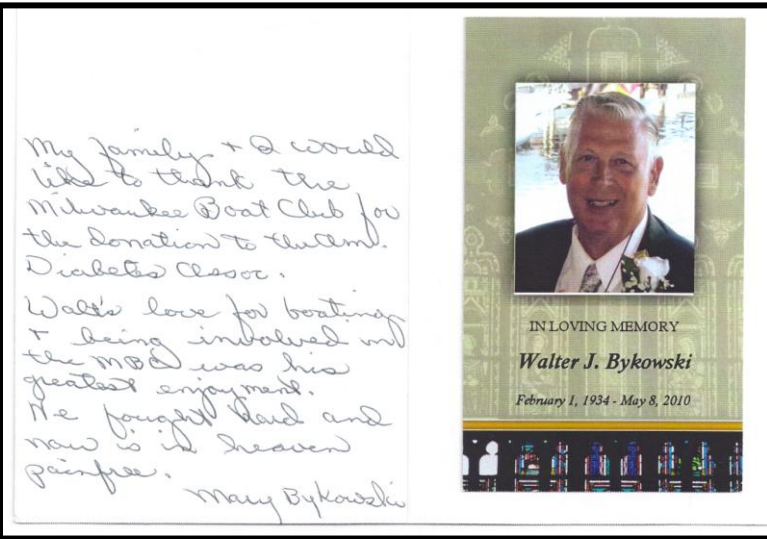 My family + I would
like to thank the
Milwaukee Boat Club for
the donation to the Am.
Diabetes Assoc.
Walt's love for boating
+ being involved in
the MBC was his
greatest enjoyment.
He fought hard and
now is in heaven
painfree.
Mary Bykowski
IN LOVING MEMORY
Walter J. Bykowski
February 1, 1934 - May 8, 2010